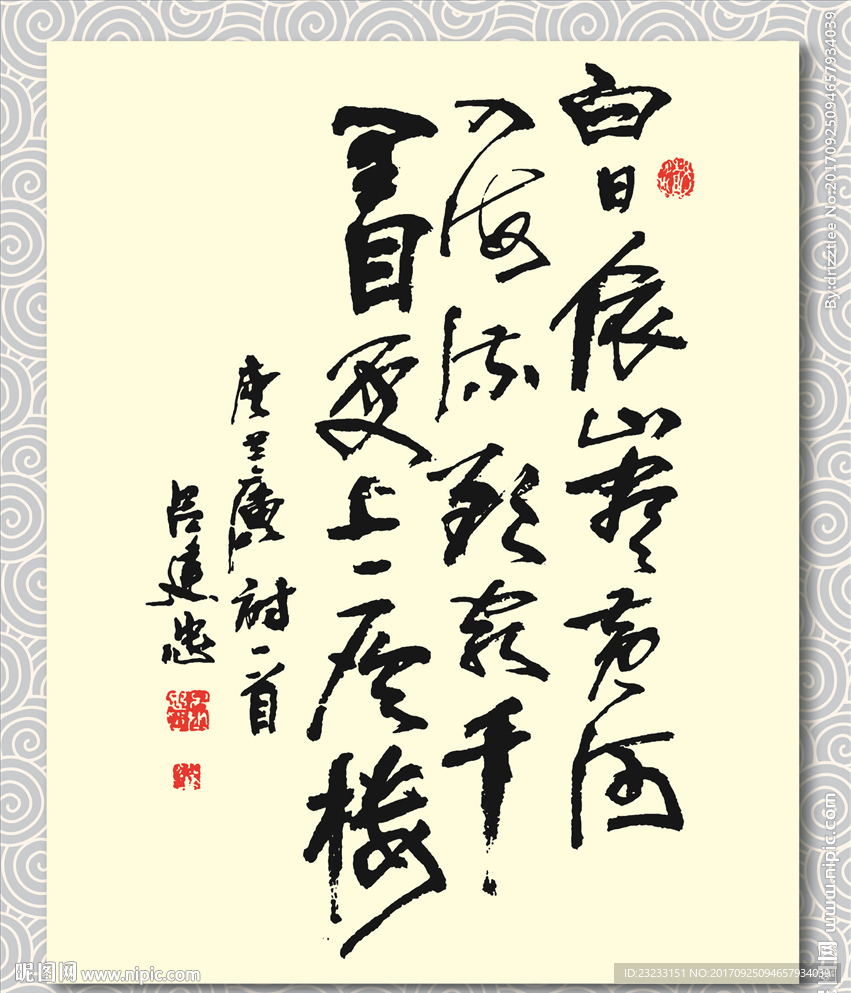 白日依山盡黄河
入海流欲窮千
里目更上一層樓
唐王之渙詩一首
吕建
By:drizztlee No:20170925094657934039
昵图网 www.nipic.com
昵图网 www.nipic.com
ID:23233151 NO:20170925094657934039